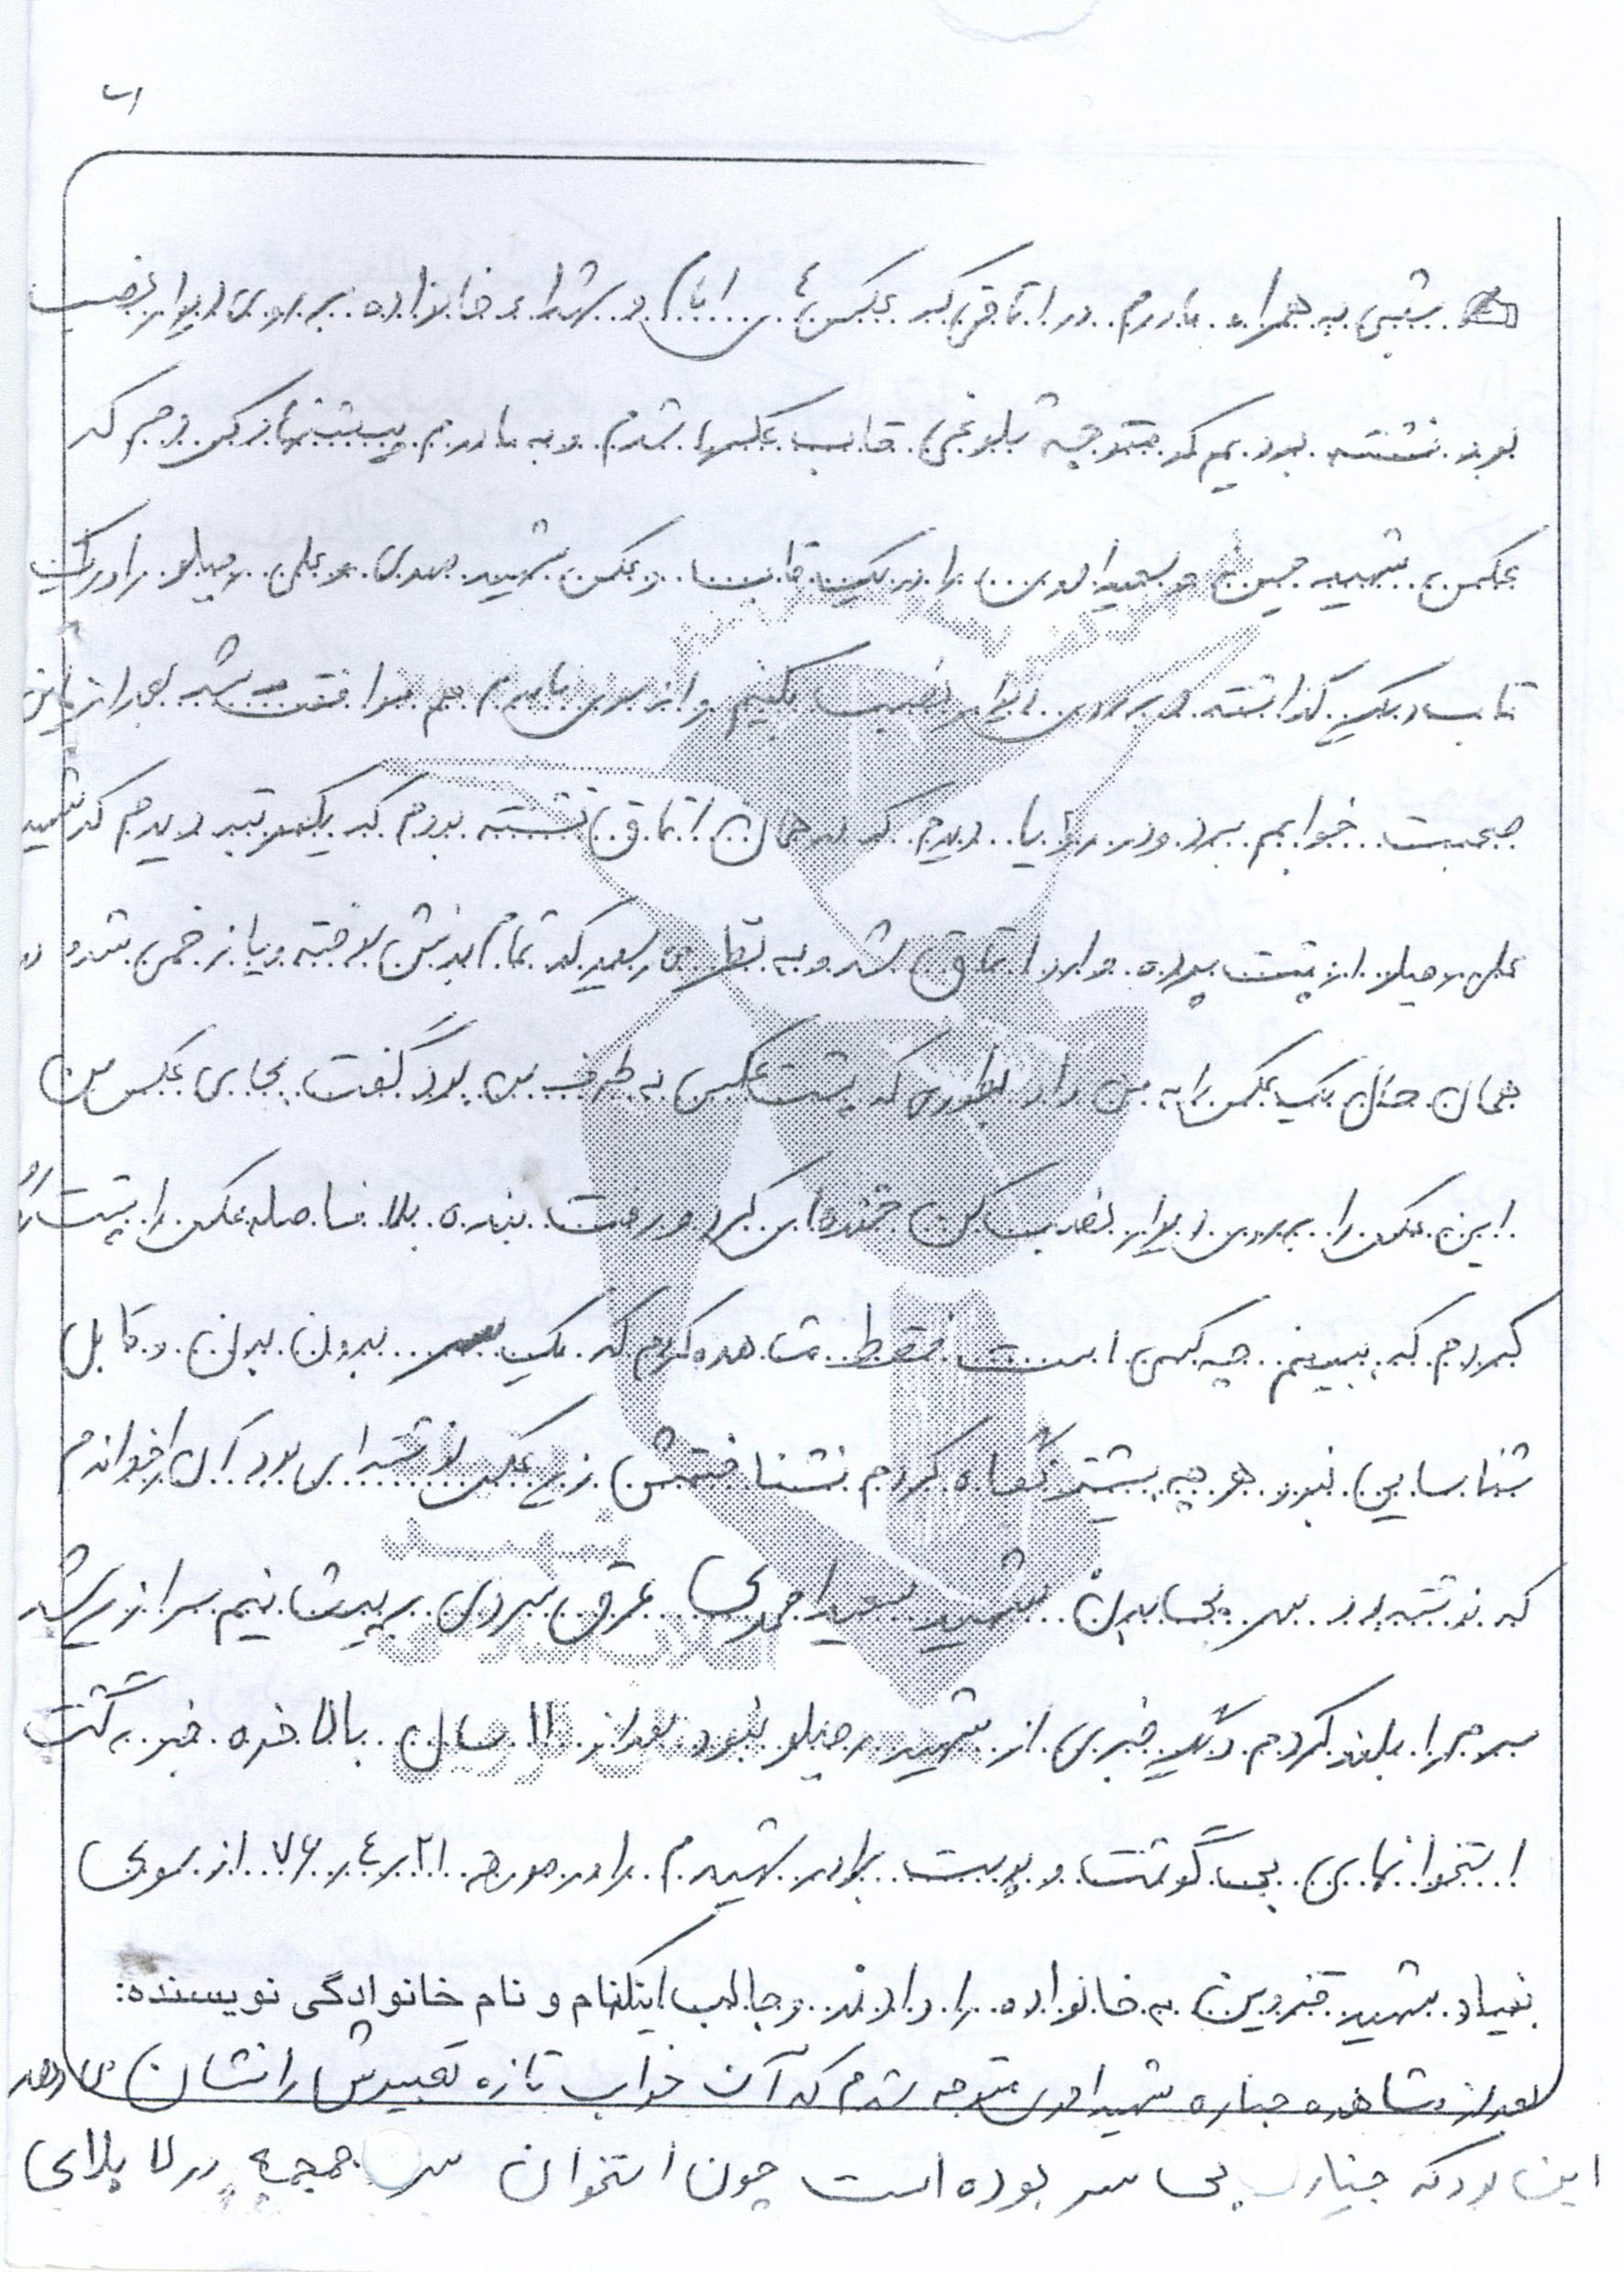 شبی به همراه مادرم در اتاقی که عکس امام و شهداء خانواده بر روی دیوار نصب
بود نشسته بودیم که متوجه شلوغی قاب عکسها شدم و به مادرم پیشنهاد کردم که
عکس شهید حسین و سعید احمدی را در یک قاب و عکس شهید مهدی و علی رحیلو را در یک
قاب دیگر گذاشته و بر روی دیوار نصب بکنیم و از سوی مادرم هم موافقت شد بعد از این
صحبت خوابم برد و در رؤیا دیدم که در همان اتاق نشسته بودم که یکمرتبه دیدم که شهید
علی رحیلو از پشت پرده وارد اتاق شد و به نظر می رسید که تمام بدنش سوخته و یا زخمی شده در
همان حال یک عکس را به من داد بطوری که پشت عکس به طرف من بود گفت بجای عکس من
این عکس را بر روی دیوار نصب کن خنده‌ای کرد و رفت بنده بلافاصله عکس را پشت رو
کردم که ببینم چه کسی است فقط مشاهده کردم که یک سر بدون بدن و قابل
شناسایی نبود هر چه بیشتر نگاه کردم نشناختمش زیر عکس نوشته‌ای بود آن را خواندم
که نوشته بود سر بی بدن شهید سعید احمدی عرق سردی بر پیشانیم سرازیر شد
سرم را بلند کردم دیگر خبری از شهید رحیلو نبود بعد از ۱۱ سال بالاخره خبر برگشت
استخوانهای بی گوشت و پوست برادر شهیدم را در مورخه ۲۱ر۴ر۷۶ از سوی
بنیاد شهید قزوین به خانواده را دادند و جالب اینکه
نام و نام خانوادگی نویسنده:
بعد از مشاهده جنازه شهید احمدی متوجه شدم که آن خواب تازه تعبیرش را نشان می دهد
این بود که جنازه بی سر بوده است چون استخوان سر جمجمه در لا بلای
شهید